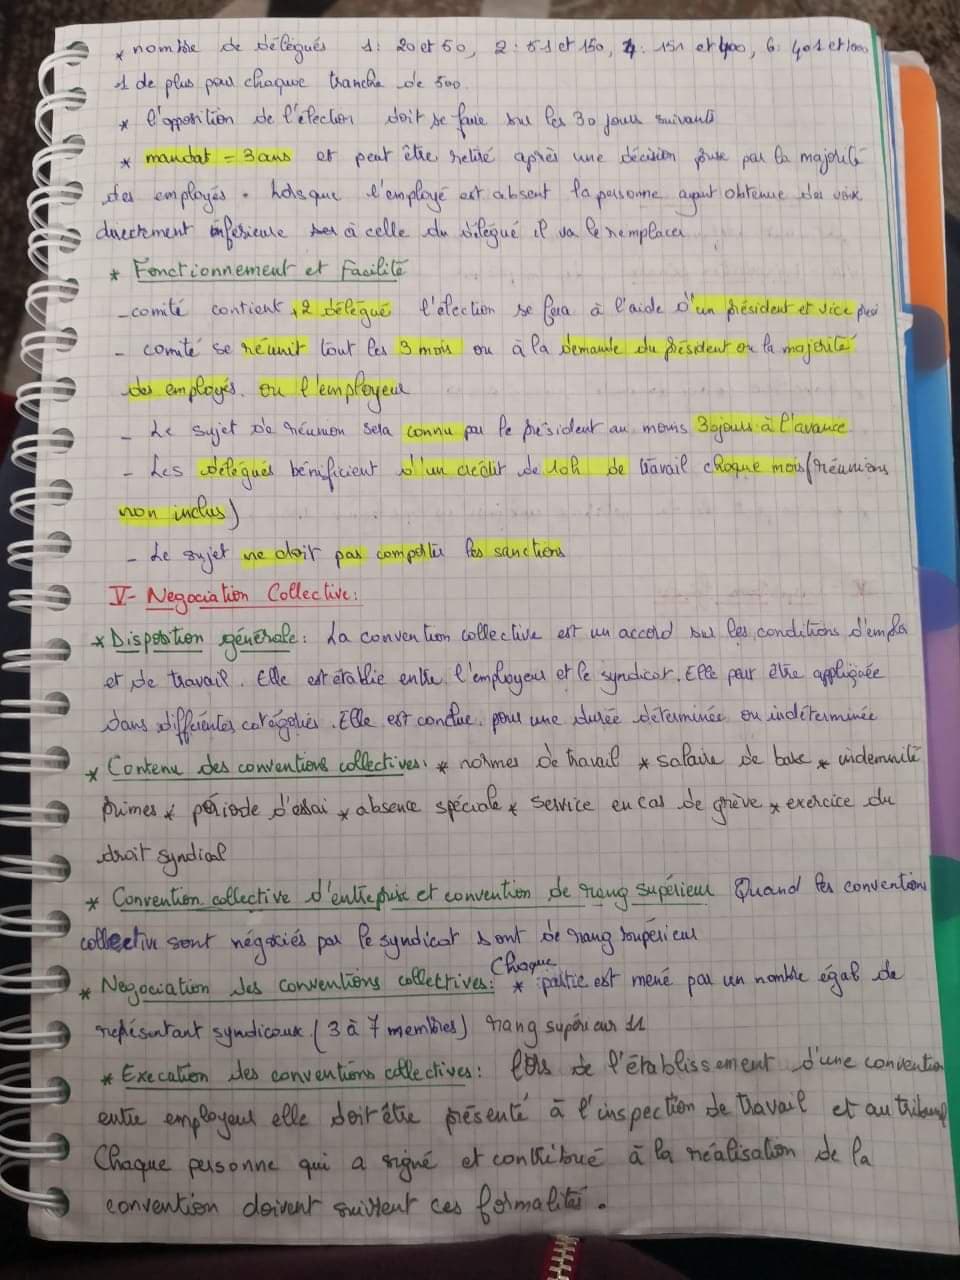 * nombre de délégués 1: 20 et 50, 2: 51 et 150, 4: 151 et 400, 6: 401 et 1000
1 de plus pour chaque tranche de 500.
* l'opposition de l'élection doit se faire sur les 30 jours suivants
* mandat = 3 ans et peut être retiré après une décision prise par la majorité
des employés. Lorsque l'employé est absent la personne ayant obtenue des voix
directement inférieure à celle du délégué il va le remplacer
* Fonctionnement et Facilité
- comité contient 2 délégué l'élection se fera à l'aide d'un président et vice presi
- comité se réunit tout les 3 mois ou à la demande du président ou la majorité
des employés. ou l'employeur
- Le sujet de réunion sera connu par le président au moins 30 jours à l'avance
- Les délégués bénificient d'un crédit de 10h de travail chaque mois (réunions
non inclus)
- Le sujet ne doit pas comporter les sanctions
V- Negociation Collective:
* Disposition générale: La convention collective est un accord sur les conditions d'emploi
et de travail. Elle est établie entre l'employeur et le syndicat. Elle peur être appliquée
dans différentes catégories. Elle est conclue pour une durée déterminée ou indéterminée
* Contenu des conventions collectives: * normes de travail * salaire de base * indemnité
primes * période d'essai * absence spéciale * service en cas de grève * exercice du
droit syndical
* Convention collective d'entreprise et convention de rang supérieur Quand les conventions
collective sont négociés par le syndicat sont de rang supérieur
* Negociation des conventions collectives: * Chaque partie est mené par un nombre égal de
représentant syndicaux (3 à 7 membres) rang supérieur 11
* Execation des conventions collectives: lors de l'établissement d'une convention
entre employeur elle doit être présenté à l'inspection de travail et au tribunal
Chaque personne qui a signé et contribué à la réalisation de la
convention doivent suivrent ces formalités.